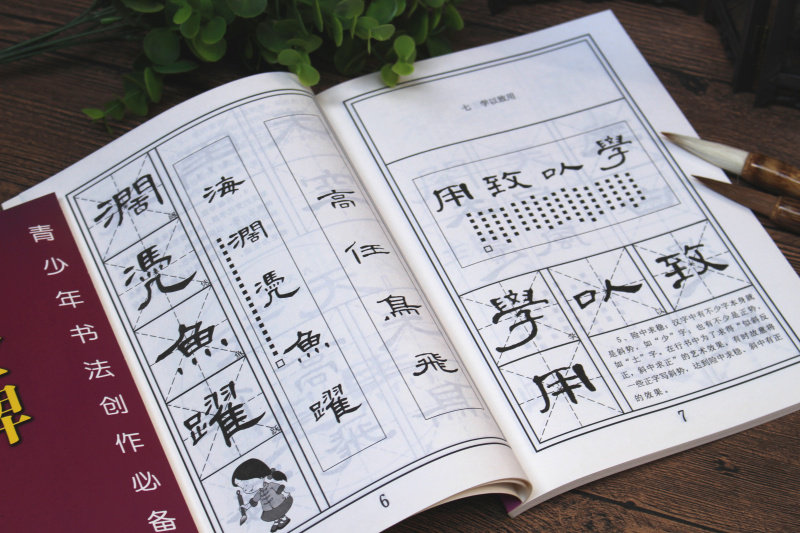 青少年书法创作必备
濶
憑
魚
躍
海濶憑魚躍
高任鳥飛
6
七 学以致用
用致以學
學以致
用
5、险中求稳。汉字中有不少字本身就
是斜势，如“少”字，也有不少是正势，
如“土”字，在行书中为了求得“似斜反
正，斜中求正”的艺术效果，有时故意将
一些正字写斜势，达到险中求稳，斜中有正
的效果。
7